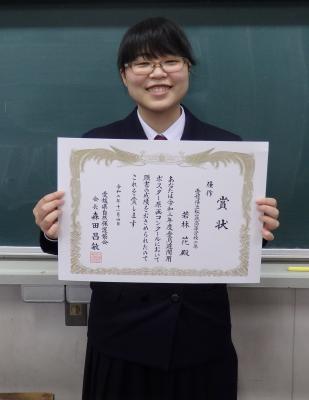 賞状
佳作
若林 花 殿
あなたは令和二年度愛鳥週間用
ポスター原画コンクールにおいて
頭書の成績をおさめられたので
これを賞します
令和二年十二月四日
愛媛県自然保護協会
会長 森田昌敏